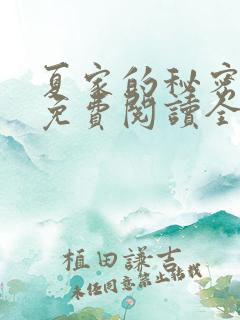 夏家的秘密
免費閱讀全
植田謙吉
未经同意禁止转载